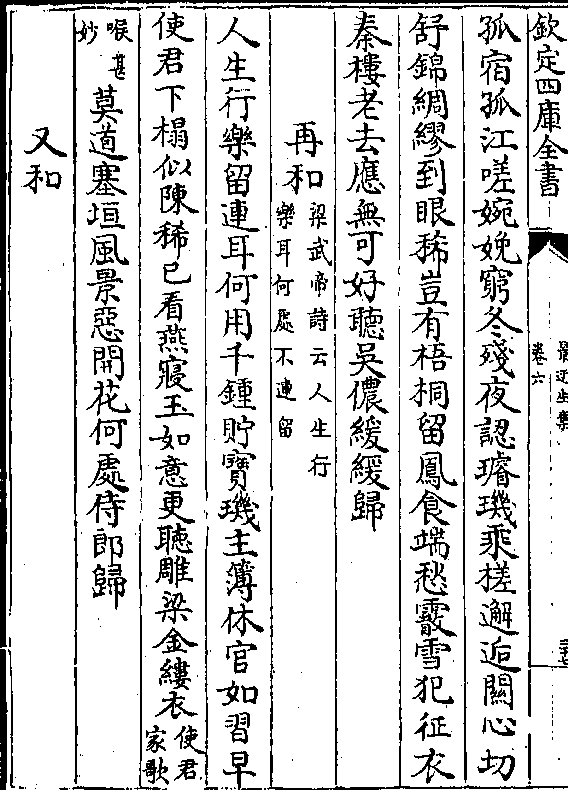 欽定四庫全書
景迂生集
卷六
孤宿孤江嗟婉娩窮冬殘夜認璿璣乘槎邂逅關心切
舒錦綢繆到眼稀豈有梧桐留鳳食端愁霰雪犯征衣
秦樓老去應無可好聽吳儂緩緩歸
再和梁武帝詩云人生行樂耳何處不連留
人生行樂留連耳何用千鍾貯寶璣主簿休官如習早
使君下榻似陳稀已看燕寢玉如意更聴雕梁金縷衣使君家歌
喉甚妙莫道塞垣風景惡開花何處侍郎歸
又和